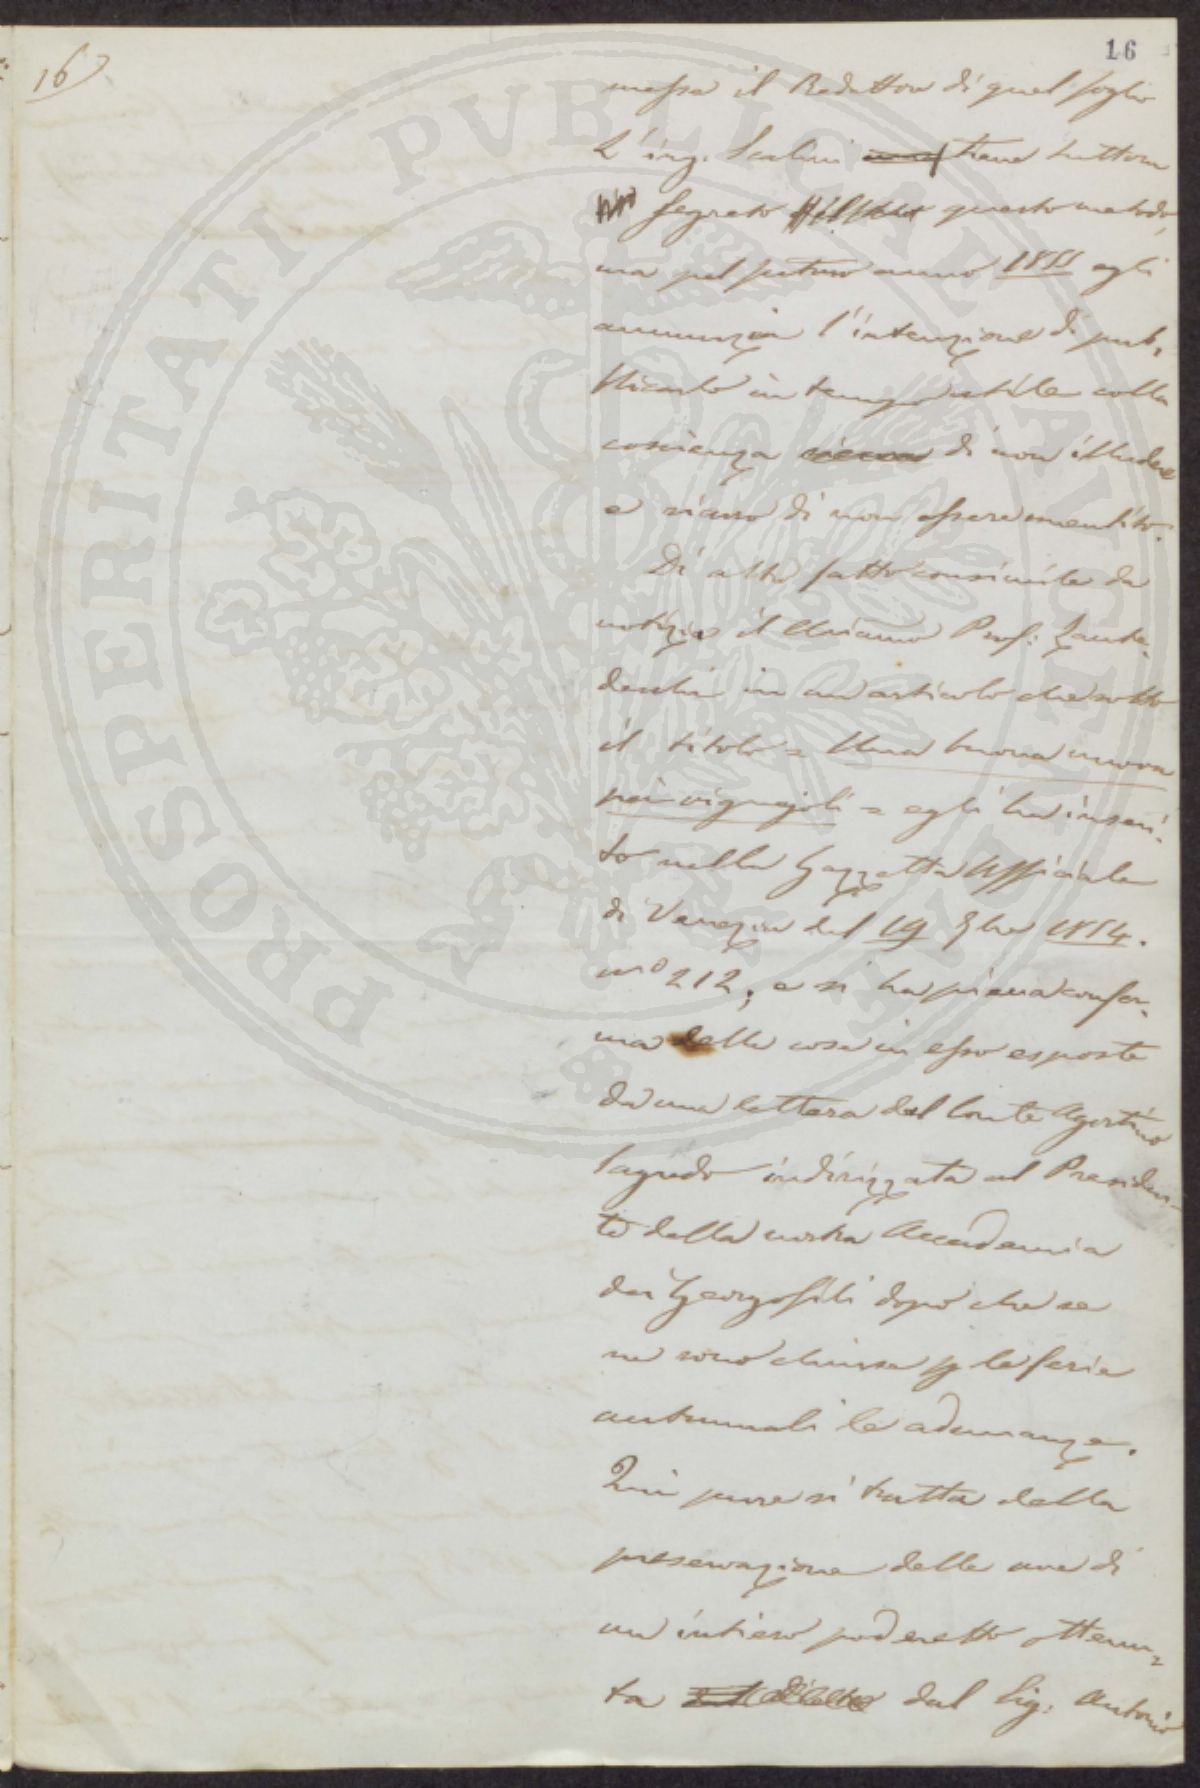 16
16)
messe il Redattore di quel foglio
L'ing. Scalini tiene tuttora
segreto questo metodo,
ma pel futuro anno 1855 egli
annunzia l'intenzione di pub,
blicarlo in tempo utile colla
coscienza di non illudere
e sicuro di non essere smentito.
Di altro fatto consimile da
notizia il Chiarmo Prof. Zante-
deschi in un articolo che sotto
il titolo = Una buona nuova
pei vignajoli = egli ha inseri-
to nella Gazzetta Officiale
di Venezia del 19 7bre 1854.
no 212; e si ha piena confer-
ma delle cose in esso esposte
da una lettera del Conte Agostino
Sagredo indirizzata al Presiden-
te della nostra Accademia
dei Georgofili dopo che se
ne sono chiuse p le ferie
autunnali le adunanze.
Qui pure si tratta della
preservazione delle uve di
un intiero poderetto ottenu-
ta dal Sig. Antonio
PROSPERITATI PUBLICAE AUGENDAE